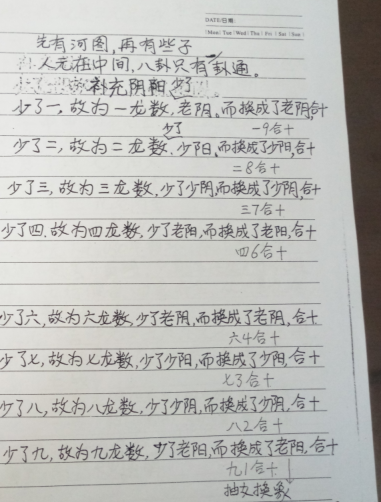 DATE/日期:
Mon Tue Wed Thu Fri Sat Sun
先有河图,再有些子
人无在中间,八卦只有一卦通。
补充阴阳
少了一,故为一龙数,老阴,而换成了老阴,合十
少了
一9合十
少了二,故为二龙数,少阳,而换成了少阳,合十
二8合十
少了三,故为三龙数,少了少阴,而换成了少阴,合十
三7合十
少了四,故为四龙数,少了老阳,而换成了老阳,合十
四6合十
少了六,故为六龙数,少了老阴,而换成了老阴,合十
六4合十
少了七,故为七龙数,少了少阳,而换成了少阳,合十
七3合十
少了八,故为八龙数,少了少阴,而换成了少阴,合十
八2合十
少了九,故为九龙数,少了老阳,而换成了老阳,合十
九1合十
抽爻换象